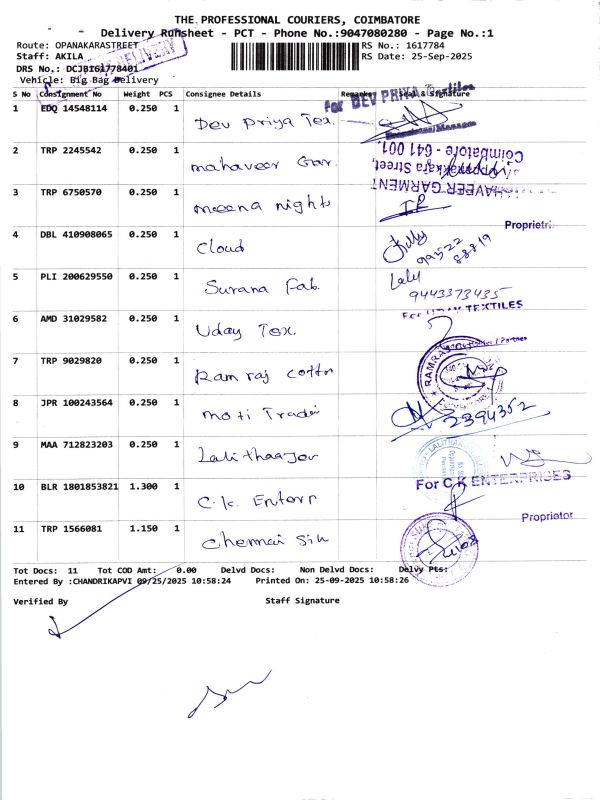 THE PROFESSIONAL COURIERS, COIMBATORE
Delivery Runsheet - PCT - Phone No.:9047080280 - Page No.:1
Route: OPANAKARASTREET
RS No.: 1617784
Staff: AKILA
RS Date: 25-Sep-2025
DRS No.: DCJB161778401
DELIVERY
Vehicle: Big Bag Delivery
S No Consignment No Weight PCS Consignee Details Remarks Seal & Signature
For DEV PRIYA Textiles
1 EDQ 14548114 0.250 1 Dev Priya Tex.
2 TRP 2245542 0.250 1 mahaveer Gar.
Coimbatore - 641 001.
MAHAVEER GARMENT
3 TRP 6750570 0.250 1 meena nights
Proprietri
4 DBL 410908065 0.250 1 Cloud
5 PLI 200629550 0.250 1 Surana Fab.
Lalu
9443373435
For UDAY TEXTILES
6 AMD 31029582 0.250 1 Uday Tex.
/ Partner
7 TRP 9029820 0.250 1 Ram raj cotton
RAMRAJ
8 JPR 100243564 0.250 1 moti Trader
2394352
9 MAA 712823203 0.250 1 Lalithaa Jew
For C.K ENTERPRISES
10 BLR 1801853821 1.300 1 C.K. Enterp
Proprietor
11 TRP 1566081 1.150 1 Chennai Silk
Tot Docs: 11 Tot COD Amt: 0.00 Delvd Docs: Non Delvd Docs: Delvy Pts:
Entered By :CHANDRIKAPVI 09/25/2025 10:58:24 Printed On: 25-09-2025 10:58:26
Verified By Staff Signature